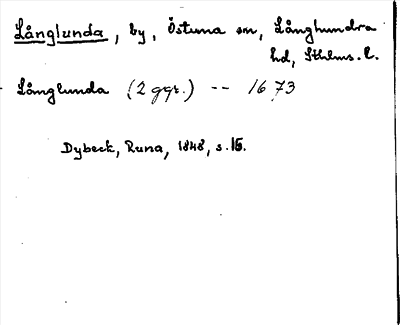 Långlunda, by, Östuna sn, Långhundra
hd, Sthlms. l.
Långlunda (2 ggr.) -- 1673
Dybeck, Runa, 1848, s. 16.